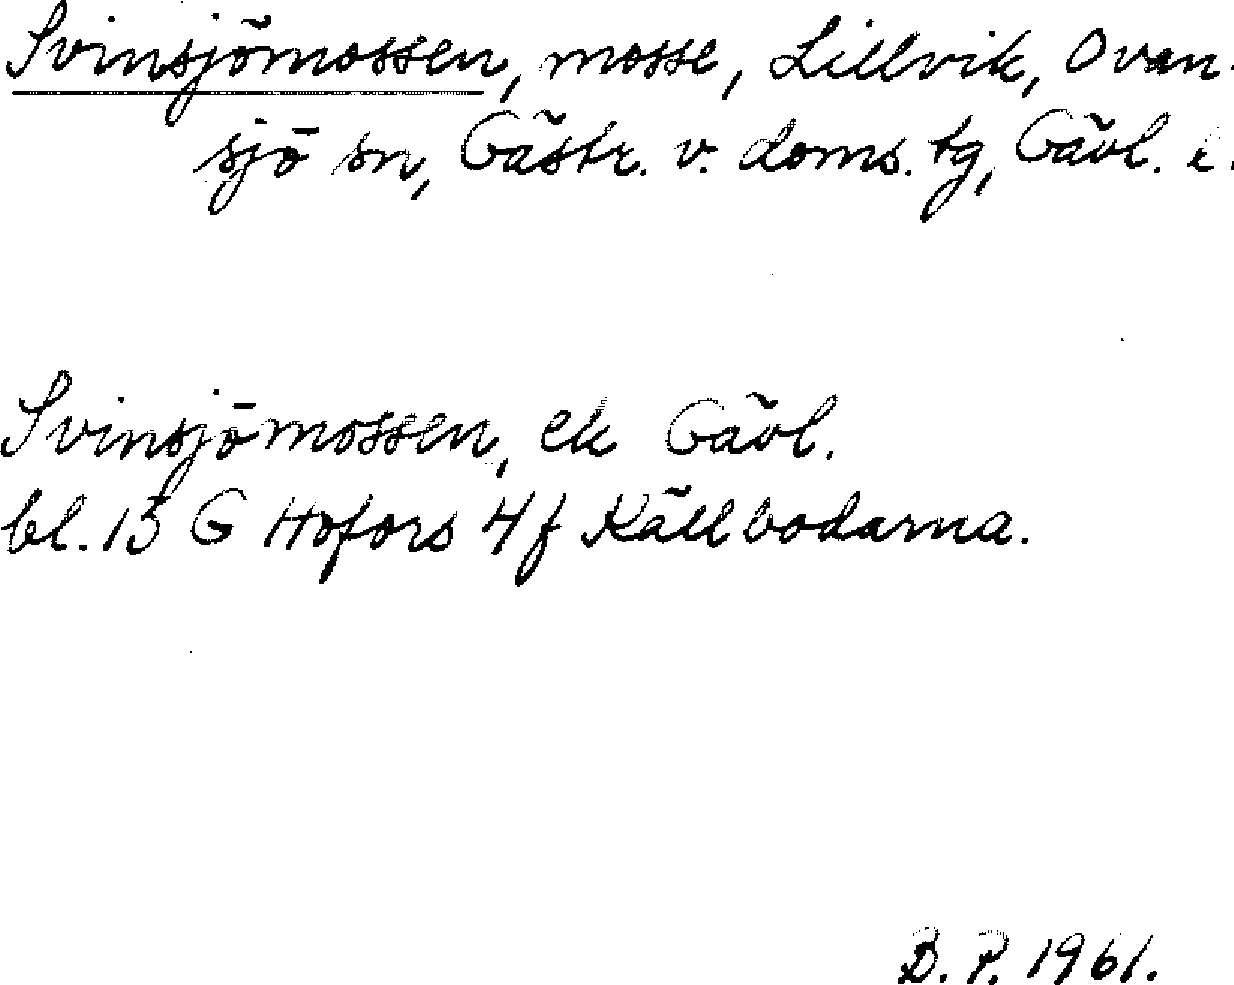 Svinsjömossen, mosse, Lillvik, Ovan-
sjö sn, Gästr. v. doms. tg, Gävl. l.
Svinsjömossen, ek Gävl.
bl. 13 G Hofors 4 f Källbodarna.
B. P. 1961.